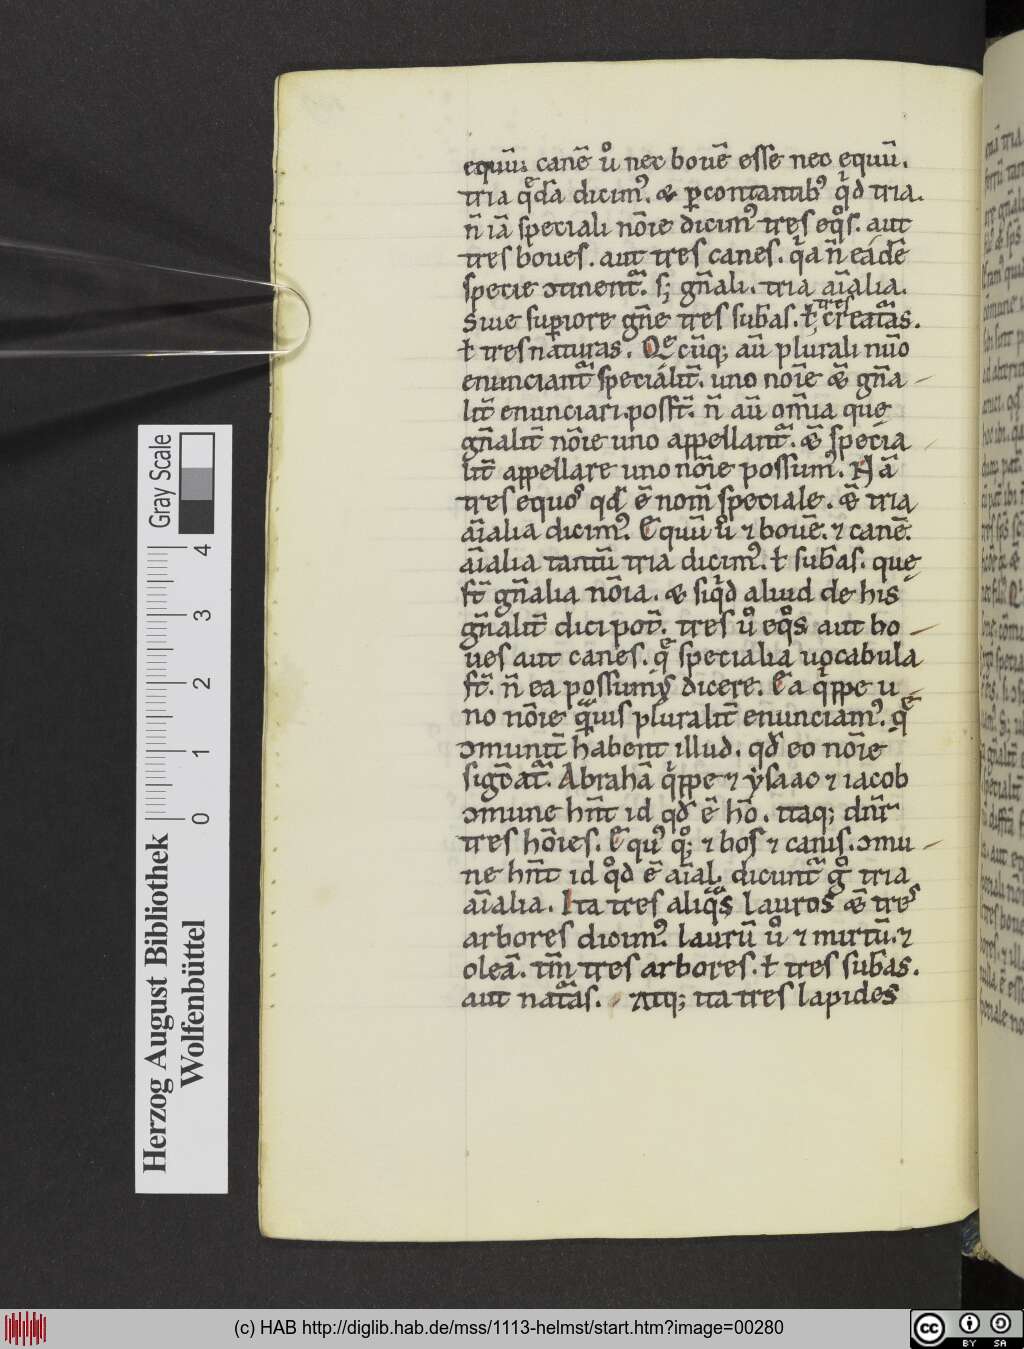 equũ. canē ů nec bouē esse nec equũ.
tria q̄dā dicim᷒. & ꝑcontantib᷒ qͥd tria.
n̄ iā speciali nōie dicim᷒ tres eqͦs. aut
tres boues. aut tres canes. qͥa n̄ eádē
specie ↄtinent᷑. s; gn̄ali. tria aīalia.
Siue suꝑiore gn̄e tres sub̄as. ł tres creat᷑as.
ł tres naturas. Qͤcūq; aū plurali nūo
enunciant᷑ speciálit̄. uno noīe & gn̄a
lit̄ enunciari poss̄t. n̄ aū om̄ia quę
gn̄alit̄ nōie uno appellant᷑. & specia
lit̄ appellare uno nōie possum᷒. Nā
tres equos qd̄ ē nom̄ speciale. & tria
aīalia dicim᷒. Equū ů ⁊ bouē. ⁊ canē.
aīalia tantū tria dicim᷒. ł sub̄as. quę
st̄ gn̄alia nōia. & siqͥd aliud de his
gn̄alit̄ dici pot̄. tres ů eqͦs aut bo
ues aut canes. qͤ specialia uocabula
st̄. n̄ ea possumus dicere. Ea qͥppe u
no nōie qͣuis pluralit̄ enunciam᷒. qͤ
ↄmunit̄ habent illud. qd̄ eo nōie
sig̅cat᷑. Abrahā qͥppe ⁊ ysaac ⁊ iacob
ↄmune hn̄t id qd̄ ē hō. itaq; dn̄r
tres hōies. Equ᷒ qͦq; ⁊ bos ⁊ canis. ↄmu
ne hn̄t id qͦd ē aīal. dicunt᷑ gͦ tria
aīalia. Ita tres aliqͣs lauros & tres
arbores dicim᷒. laurū ů ⁊ mirtū. ⁊
oleā. tm̄ tres arbores. ł tres sub̄as.
aut nat᷑as. Atq; ita tres lapides
Gray Scale
4
3
2
1
0
Herzog August Bibliothek
Wolfenbüttel
(c) HAB http://diglib.hab.de/mss/1113-helmst/start.htm?image=00280
cc
BY SA